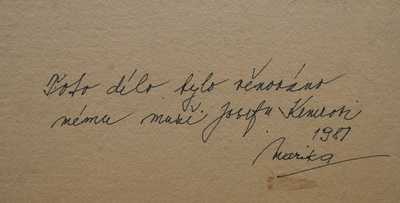 Toto dílo bylo věnováno
mému muži Josefu
1981
Marika